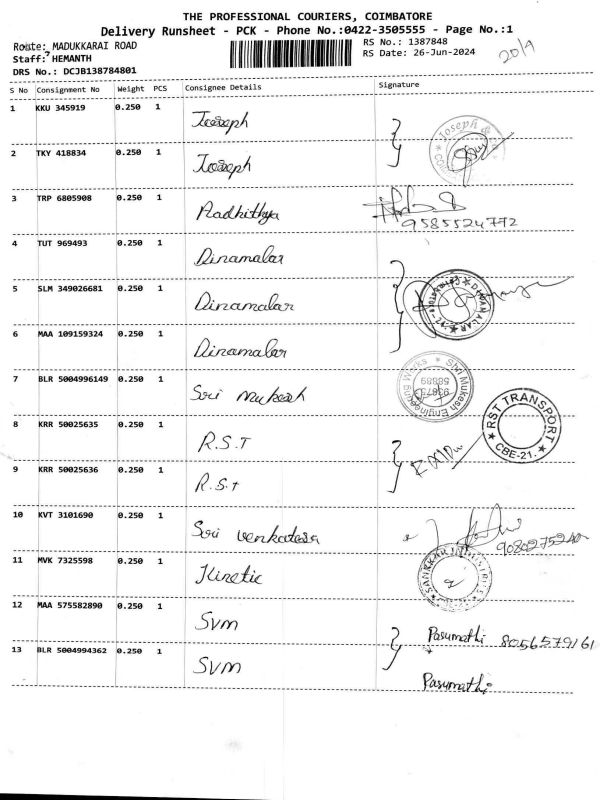 THE PROFESSIONAL COURIERS, COIMBATORE
Delivery Runsheet - PCK - Phone No.:0422-3505555 - Page No.:1
Route: MADUKKARAI ROAD
RS No.: 1387848
Staff: HEMANTH
RS Date: 26-Jun-2024
DRS No.: DCJB138784801
S No Consignment No Weight PCS Consignee Details Signature
1 KKU 345919 0.250 1 Joseph
2 TKY 418834 0.250 1 Joseph
3 TRP 6805908 0.250 1 Aadhithya
9585524772
4 TUT 969493 0.250 1 Dinamalar
5 SLM 349026681 0.250 1 Dinamalar
DINAMALAR
6 MAA 109159324 0.250 1 Dinamalar
7 BLR 5004996149 0.250 1 Sri Mukesh
Shri Mukesh Engineering Works
8 KRR 50025635 0.250 1 R.S.T
RST TRANSPORT
CBE-21.
9 KRR 50025636 0.250 1 R.S.T
10 KVT 3101690 0.250 1 Sri Venkatesa
11 MVK 7325598 0.250 1 Kinetic
12 MAA 575582890 0.250 1 SVM
Pasumathi 8056579161
13 BLR 5004994362 0.250 1 SVM
Pasumathi